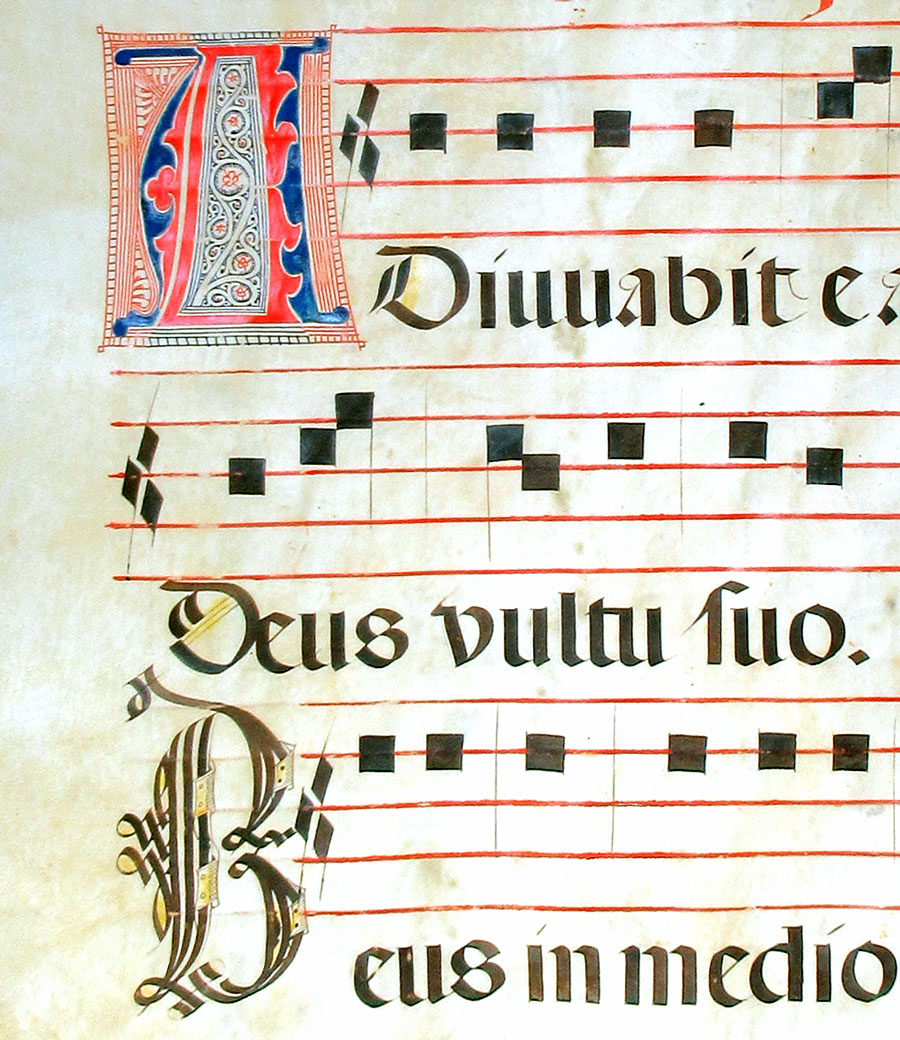 ADiuuabit ea
Deus vultu suo.
Deus in medio